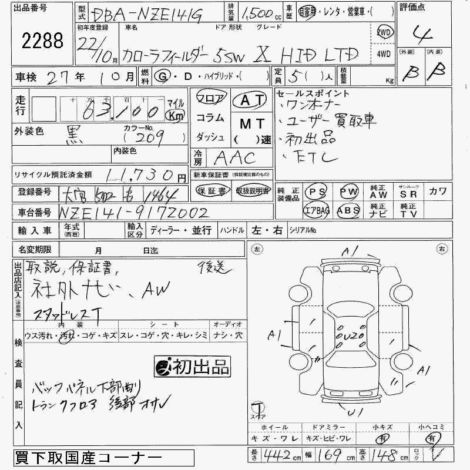 出品番号 2288
型式 DBA-NZE141G 排気量 1,500cc 車歴 自家用・レンタ・営業車( ) 評価点 4
初年度登録 22/10月 車名 ドア 形状 グレード カローラフィールダー 5SW X HID LTD 2WD 4WD
車検 27年10月 燃料 G・D・ハイブリッド・( ) 定員 5( )人 積載量 Kg 外装 B 内装 B
走行 63,100 マイル Km フロア コラム ダッシュ AT MT ( )速
セールスポイント
・ワンオーナー
・ユーザー買取車
・初出品
・ETC
外装色 黒 カラーNo. (209)
内装色 冷房 AAC
リサイクル預託済金額 11,730 新車保証書 保証書 取扱説明書
登録番号 1464 純正装備品 PS PW 純正AW サンルーフSR カワ
車台番号 NZE141-9172002 エアBAG ABS 純正ナビ 純正TV
輸入車 年式 輸入区分 ディーラー・並行 ハンドル 左・右 シリアルNo.
名変期限 月 日迄
出品店記入
取説,保証書, 後送
社外ナビ、AW
スタッドレスT
内装 シート オーディオ
ウス汚れ・汚れ・コゲ・キズ スレ・コゲ・穴・キレ・シミ ナシ・穴
検査員記入
初出品
バックパネル下部曲り
トランクフロア 後部オサレ
左 右
A1 A1
U20
A1
U1
スペアー
ホイール ドアミラー 小キズ 小ヘコミ
キズ・ワレ キズ・ヒビ・ワレ 有 有
長さ 442cm 幅 169cm 高さ 148cm
買下取国産コーナー